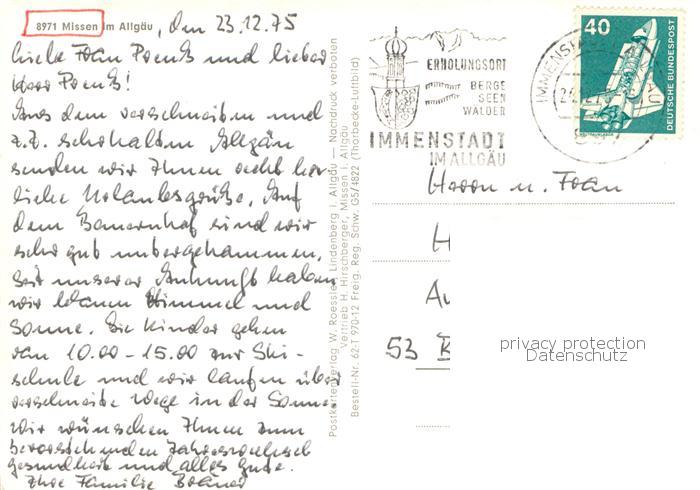 8971 Missen im Allgäu, den 23.12.75
Liebe Frau Preuß und lieber
Herr Preuß!
Aus dem verschneiten und
z.Z. sehr kalten Allgäu
senden wir Ihnen recht herz
liche Urlaubsgrüße. Auf
dem Bauernhof sind wir
sehr gut untergekommen,
seit unserer Ankunft haben
wir blauen Himmel und
Sonne. Die Kinder gehen
von 10.00 - 15.00 zur Ski-
schule und wir laufen über
verschneite Wege in der Sonne.
Wir wünschen Ihnen zum
bevorstehenden Jahreswechsel
Gesundheit und alles Gute.
Ihre Familie
Postkartenverlag W. Roessler, Lindenberg i. Allgäu — Nachdruck verboten
Vertrieb H. Hirschberger, Missen i. Allgäu
Bestell-Nr. 62-T 970-12 Freig. Reg. Schw. G5/4822 (Thorbecke-Luftbild)
ERHOLUNGSORT
BERGE
SEEN
WÄLDER
IMMENSTADT
IM ALLGÄU
40
DEUTSCHE BUNDESPOST
Herrn u. Frau
H
Au
53 B
privacy protection
Datenschutz